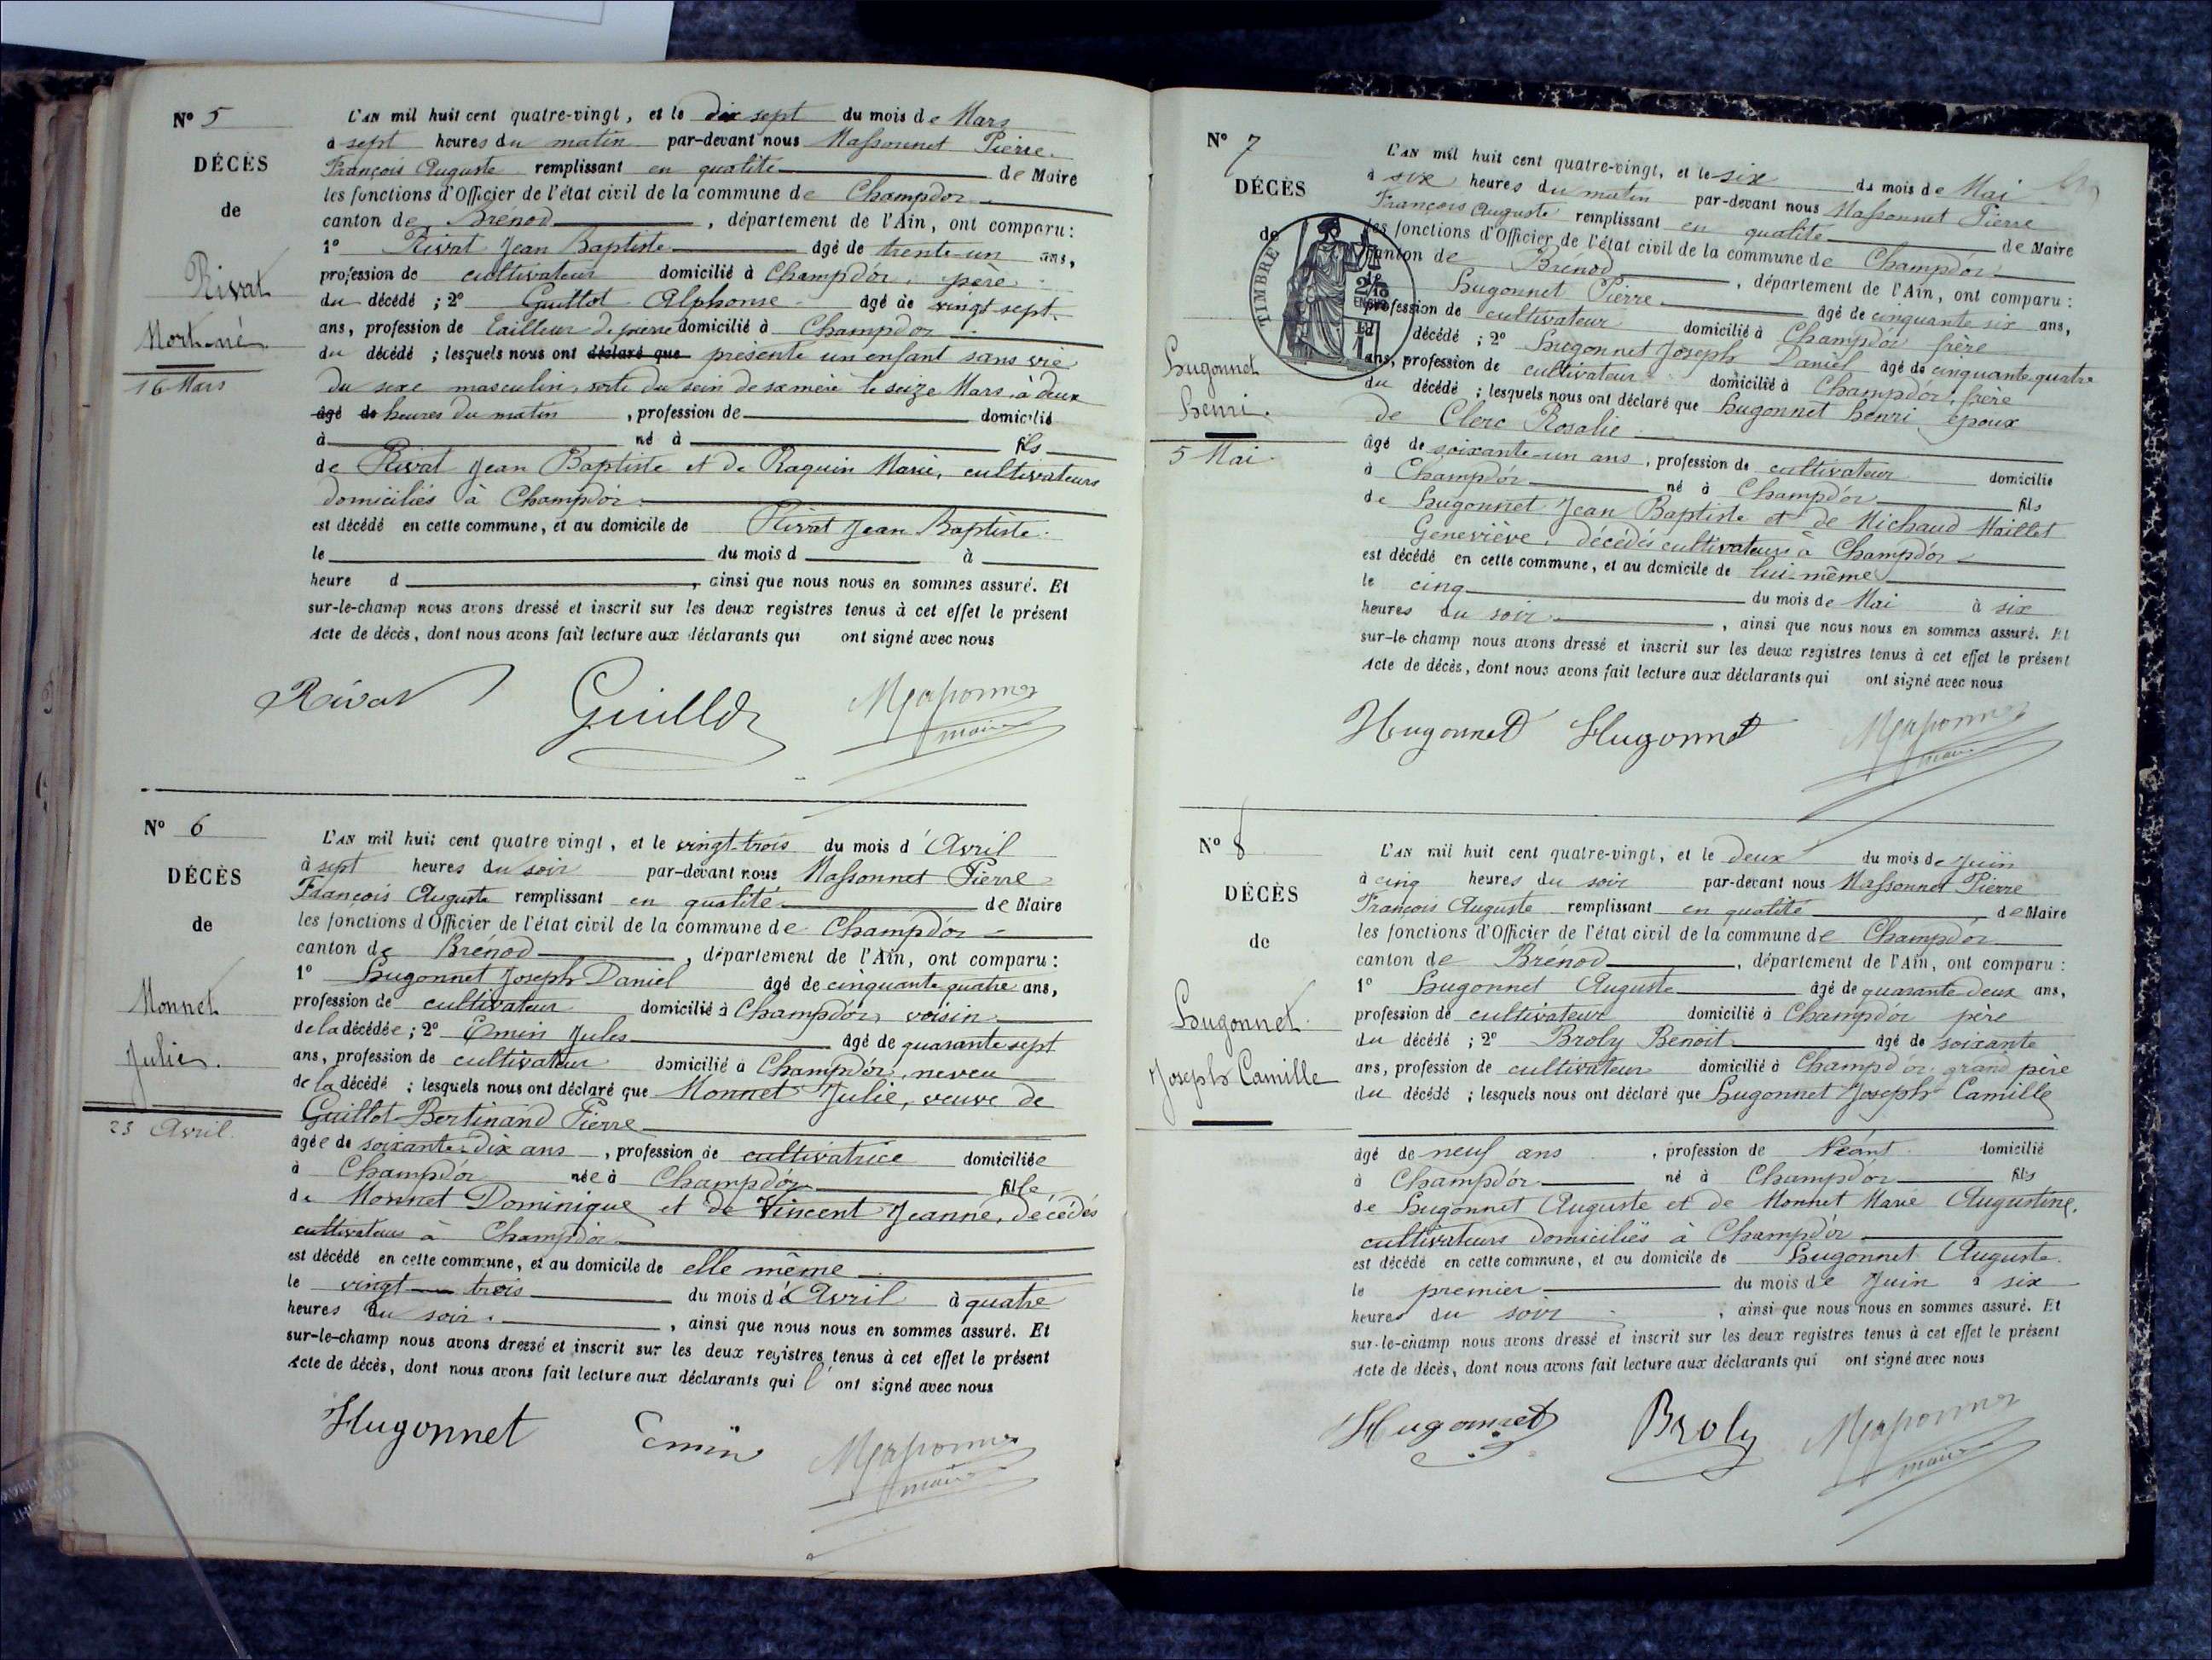 N° 5
DÉCÈS
de
Rivat
Mort-né
16 Mars
L'AN mil huit cent quatre-vingt, et le dix sept du mois de Mars
à sept heures du matin par-devant nous Massonnet Pierre
François Auguste remplissant en qualité de Maire
les fonctions d'Officier de l'état civil de la commune de Champdor
canton de Brénod, département de l'Ain, ont comparu:
1° Rivat Jean Baptiste âgé de trente-un ans,
profession de cultivateur domicilié à Champdor, père
du décédé ; 2° Guillot Alphonse âgé de vingt-sept
ans, profession de tailleur de pierre domicilié à Champdor
du décédé ; lesquels nous ont déclaré que présenté un enfant sans vie
du sexe masculin, sorti du sein de sa mère le seize Mars, à deux
âgé de heures du matin , profession de domicilié
à né à fils
de Rivat Jean Baptiste et de Raquin Marie, cultivateurs
domiciliés à Champdor
est décédé en cette commune, et au domicile de Rivat Jean Baptiste
le du mois d à
heure d , ainsi que nous nous en sommes assuré. Et
sur-le-champ nous avons dressé et inscrit sur les deux registres tenus à cet effet le présent
Acte de décès, dont nous avons fait lecture aux déclarants qui ont signé avec nous
Rivat Guillot Massonnet
maire
N° 6
DÉCÈS
de
Monnet
Julie
23 Avril
L'AN mil huit cent quatre vingt, et le vingt-trois du mois d'Avril
à sept heures du soir par-devant nous Massonnet Pierre
François Auguste remplissant en qualité de Maire
les fonctions d'Officier de l'état civil de la commune de Champdor
canton de Brénod, département de l'Ain, ont comparu :
1° Hugonnet Joseph Daniel âgé de cinquante quatre ans,
profession de cultivateur domicilié à Champdor, voisin
de la décédée ; 2° Emin Jules âgé de quarante sept
ans, profession de cultivateur domicilié à Champdor, neveu
de la décédé ; lesquels nous ont déclaré que Monnet Julie, veuve de
Guillot Bertinand Pierre
âgée de soixante-dix ans , profession de cultivatrice domiciliée
à Champdor née à Champdor fille
de Monnet Dominique et de Vincent Jeanne, décédés
cultivateurs à Champdor
est décédé en cette commune, et au domicile de elle même
le vingt trois du mois d'Avril à quatre
heures du soir , ainsi que nous nous en sommes assuré. Et
sur-le-champ nous avons dressé et inscrit sur les deux registres tenus à cet effet le présent
Acte de décès, dont nous avons fait lecture aux déclarants qui l'ont signé avec nous
Hugonnet Emin Massonnet
maire
N° 7
DÉCÈS
de
TIMBRE
Hugonnet
Henri.
5 Mai
L'AN mil huit cent quatre-vingt, et le six du mois de Mai
à six heures du matin par-devant nous Massonnet Pierre
François Auguste remplissant en qualité de Maire
les fonctions d'Officier de l'état civil de la commune de Champdor
canton de Brénod, département de l'Ain, ont comparu :
Hugonnet Pierre âgé de cinquante six ans,
profession de cultivateur domicilié à Champdor frère
décédé ; 2° Hugonnet Joseph Daniel âgé de cinquante quatre
ans, profession de cultivateur domicilié à Champdor, frère
du décédé ; lesquels nous ont déclaré que Hugonnet Henri époux
de Clerc Rosalie
âgé de soixante-un ans , profession de cultivateur domicilié
à Champdor né à Champdor fils
de Hugonnet Jean Baptiste et de Michaud Maillet
Geneviève, décédés cultivateurs à Champdor
est décédé en cette commune, et au domicile de lui-même
le cinq du mois de Mai à six
heures du soir , ainsi que nous nous en sommes assuré. Et
sur-le-champ nous avons dressé et inscrit sur les deux registres tenus à cet effet le présent
Acte de décès, dont nous avons fait lecture aux déclarants qui ont signé avec nous
Hugonnet Hugonnet Massonnet
maire
N° 8
DÉCÈS
de
Hugonnet
Joseph Camille
L'AN mil huit cent quatre-vingt, et le deux du mois de Juin
à cinq heures du soir par-devant nous Massonnet Pierre
François Auguste remplissant en qualité de Maire
les fonctions d'Officier de l'état civil de la commune de Champdor
canton de Brénod, département de l'Ain, ont comparu :
1° Hugonnet Auguste âgé de quarante deux ans,
profession de cultivateur domicilié à Champdor père
du décédé ; 2° Broly Benoit âgé de soixante
ans, profession de cultivateur domicilié à Champdor, grand père
du décédé ; lesquels nous ont déclaré que Hugonnet Joseph Camille
âgé de neuf ans , profession de Néant domicilié
à Champdor né à Champdor fils
de Hugonnet Auguste et de Monnet Marie Augustine,
cultivateurs domiciliés à Champdor
est décédé en cette commune, et au domicile de Hugonnet Auguste
le premier du mois de Juin à six
heures du soir , ainsi que nous nous en sommes assuré. Et
sur-le-champ nous avons dressé et inscrit sur les deux registres tenus à cet effet le présent
Acte de décès, dont nous avons fait lecture aux déclarants qui ont signé avec nous
Hugonnet Broly Massonnet
maire